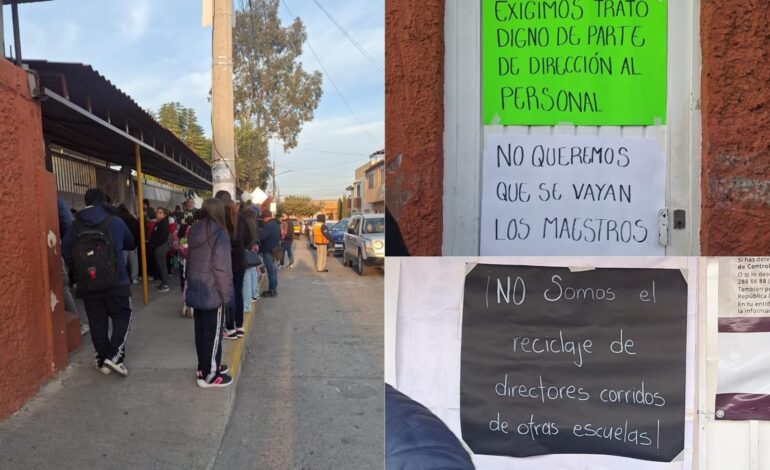 EXIGIMOS TRATO
DIGNO DE PARTE
DE DIRECCIÓN AL
PERSONAL
NO QUEREMOS
QUE SE VAYAN
LOS MAESTROS
¡NO Somos el
reciclaje de
directores corridos
de otras escuelas!
Si has
de Control
O si lo
288 66 88
También
República
En tu entid
la informa